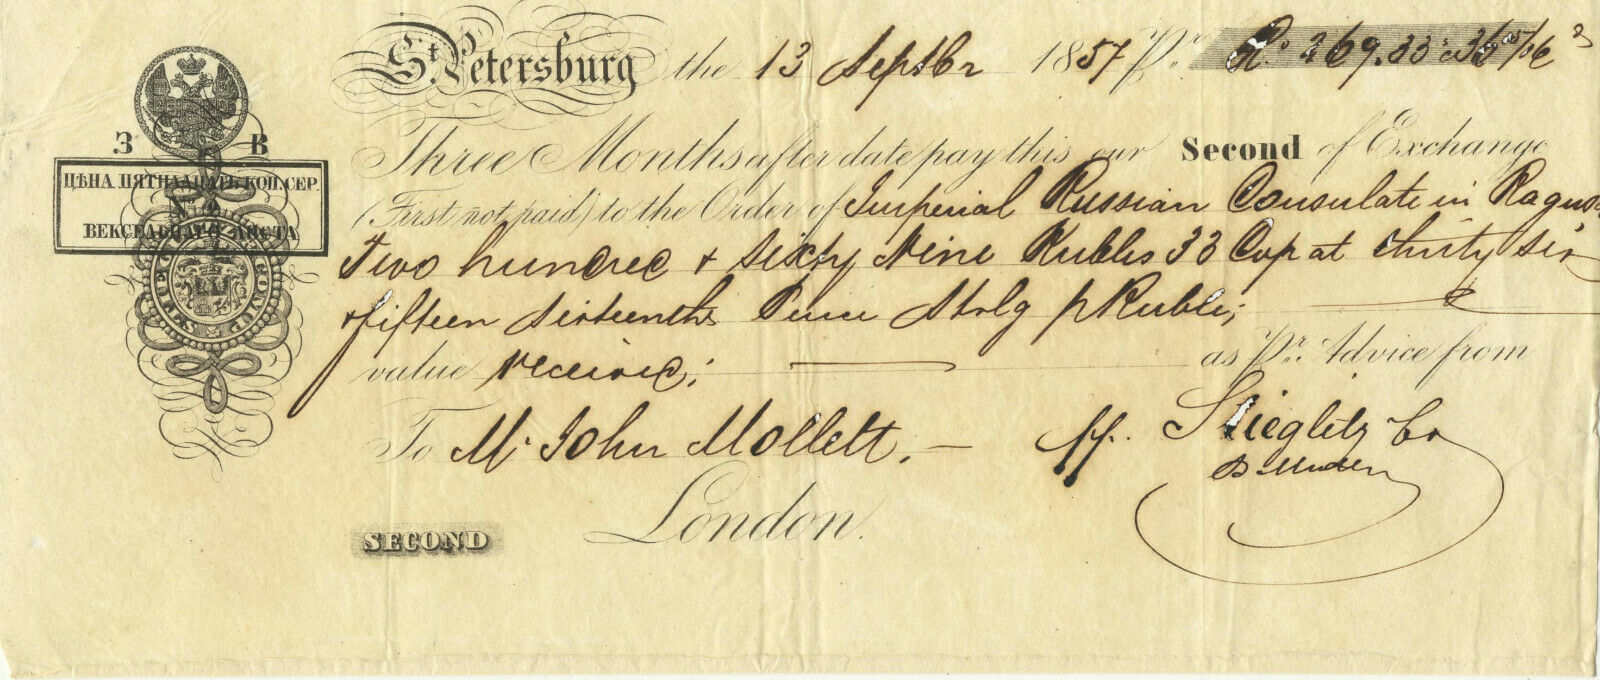 St. Petersburg the 13 Septbr 1857 Pr. R. 269.33 c 36 15/16 d
Three Months after date pay this our Second of Exchange
(First not paid) to the Order of Imperial Russian Consulate in Ragusa
Two hundred & Sixty Nine Rubles 33 Cop at thirty six
& fifteen sixteenths Pence Strlg p Ruble;
value received; as Pr. Advice from
To Mr John Mollett. Stieglitz & Co
London.
SECOND
З В
ЦѢНА ПЯТНАДЦАТЬ КОП. СЕР.
ВЕКСЕЛЬНАГО ЛИСТА